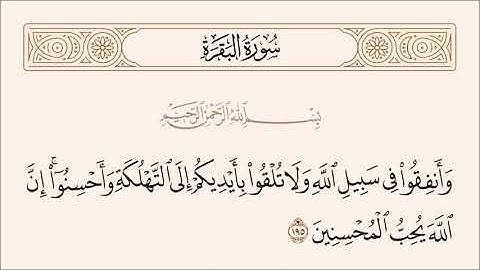 سُورَةُ البَقَرَةِ
بِسْمِ اللَّهِ الرَّحْمَٰنِ الرَّحِيمِ
وَأَنفِقُوا۟ فِى سَبِيلِ ٱللَّهِ وَلَا تُلْقُوا۟ بِأَيْدِيكُمْ إِلَى ٱلتَّهْلُكَةِ وَأَحْسِنُوٓا۟ ۛ إِنَّ
ٱللَّهَ يُحِبُّ ٱلْمُحْسِنِينَ ١٩٥